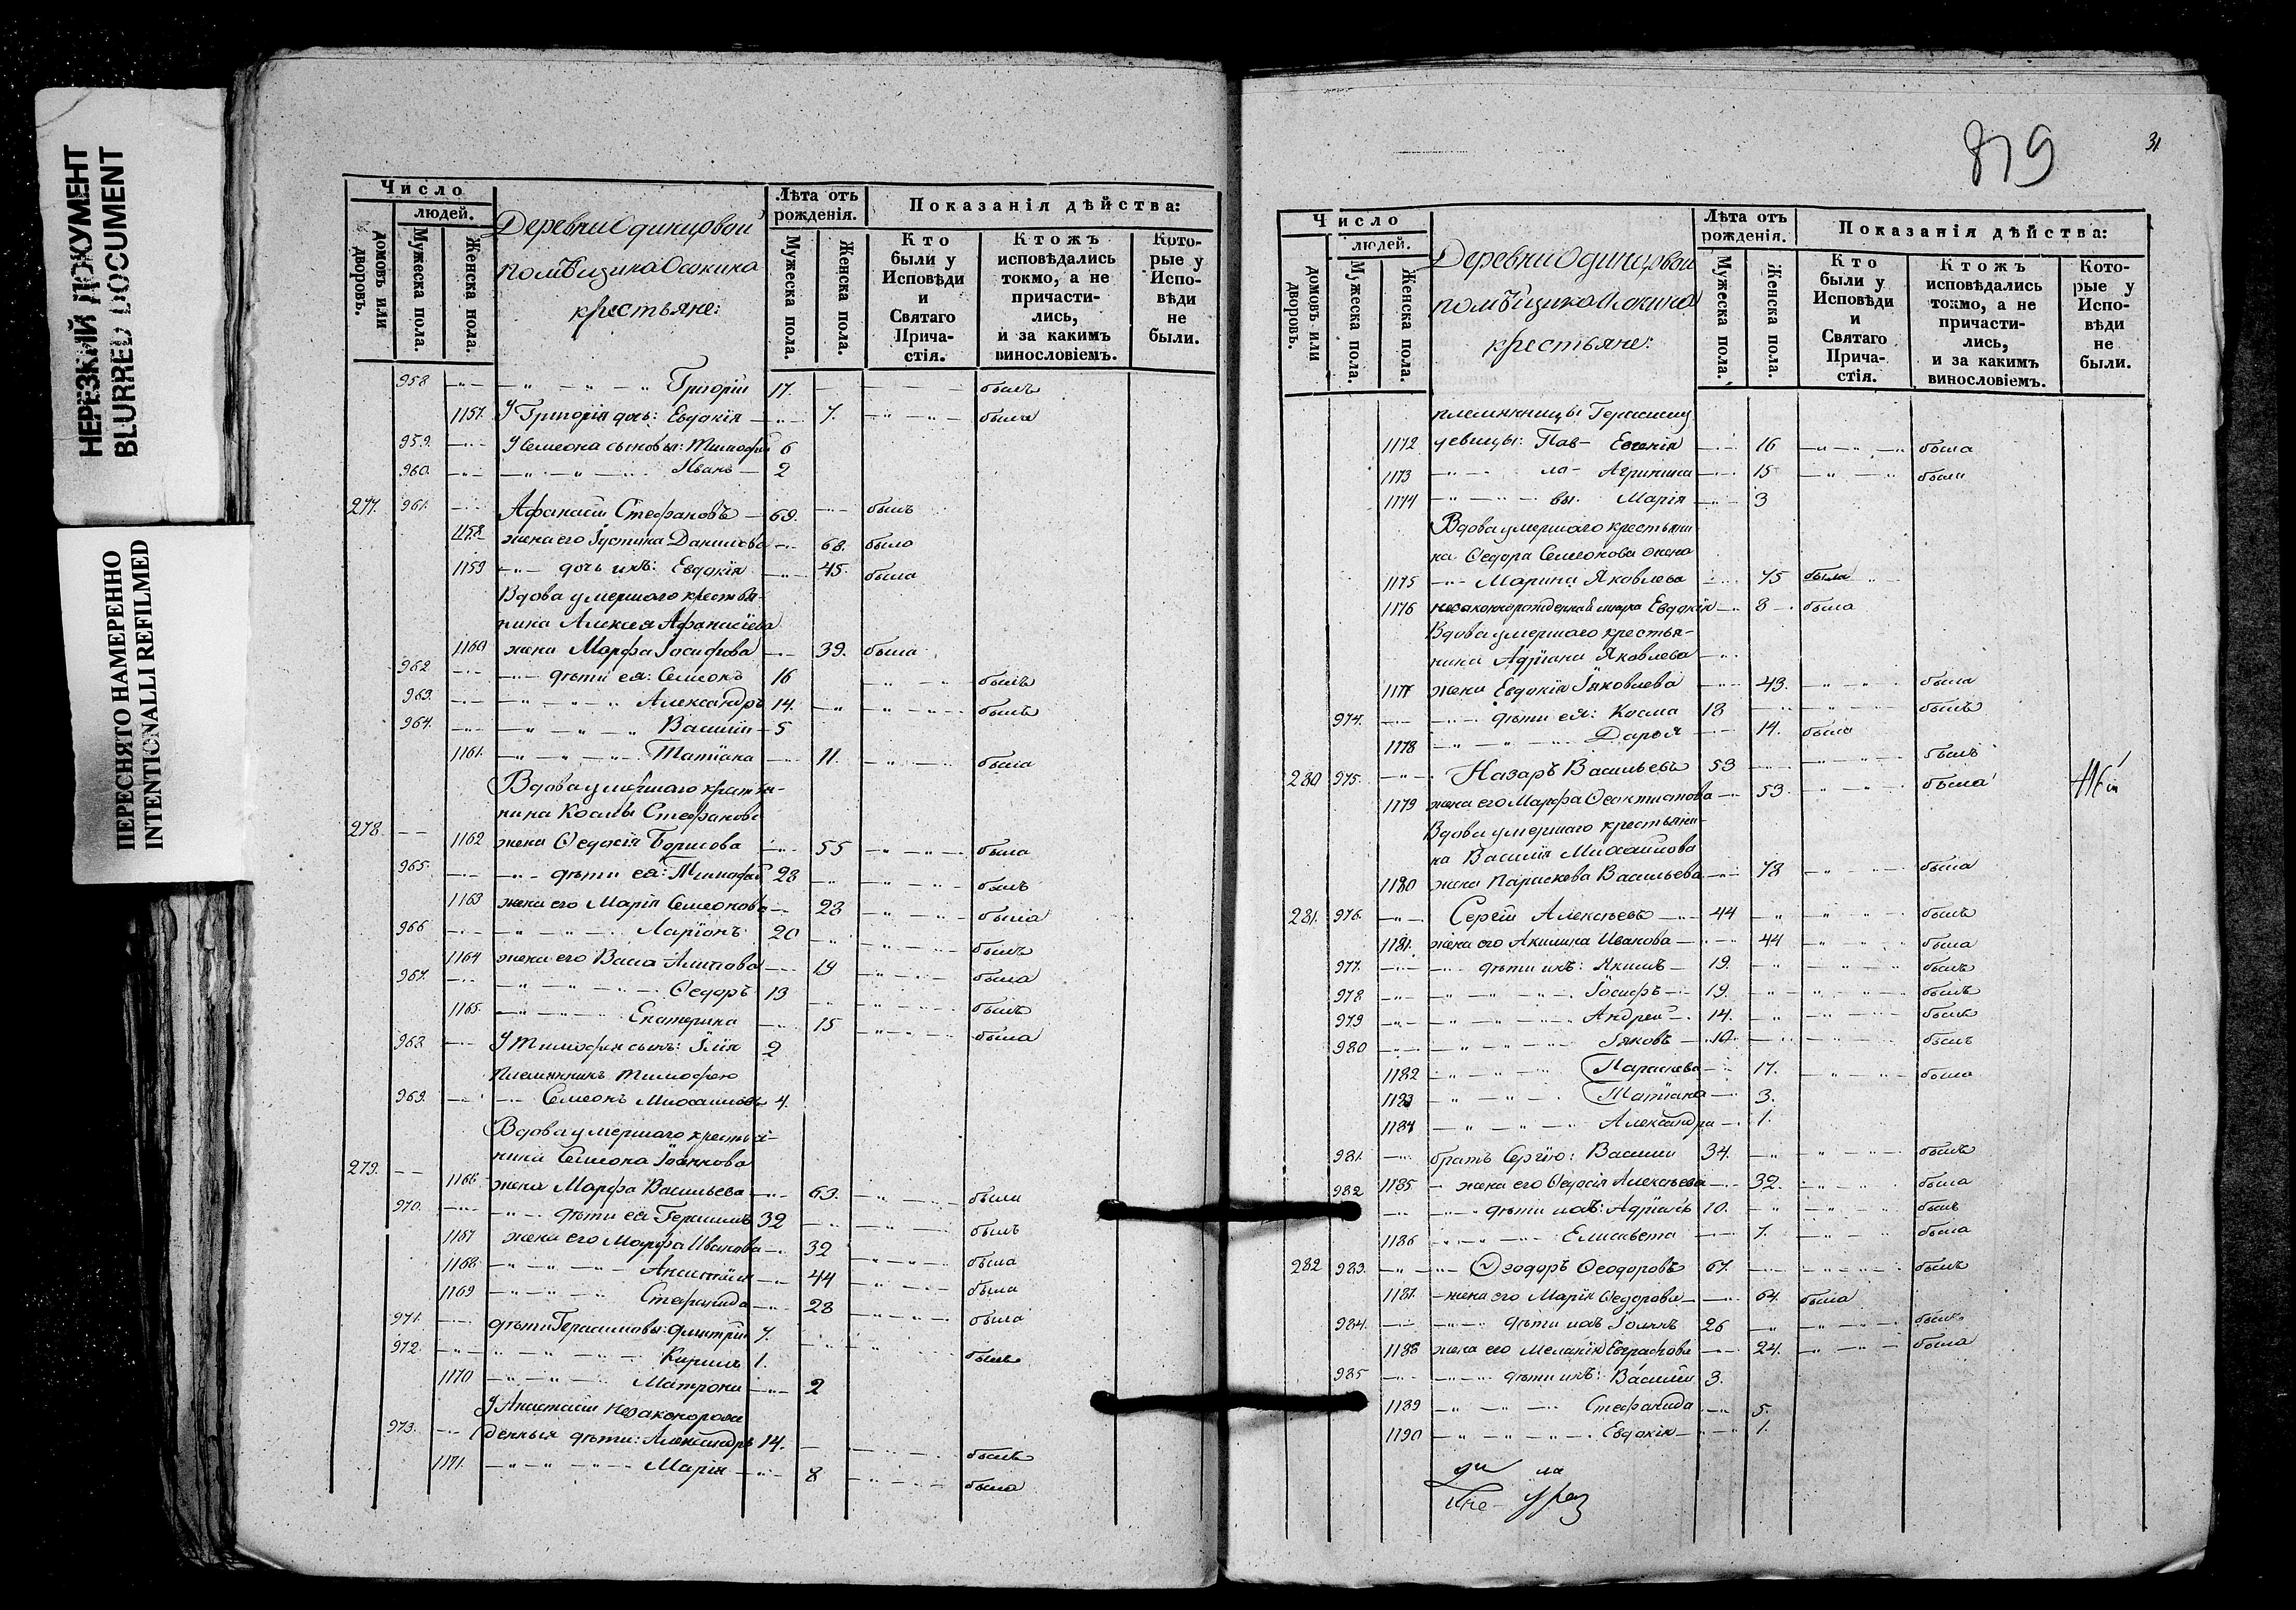 НЕРЕЗКИЙ ДОКУМЕНТ
BLURRED DOCUMENT
ПЕРЕСНЯТО НАМЕРЕННО
INTENTIONALLI REFILMED
Число
людей.
домовъ или дворовъ.
Мужеска пола.
Женска пола.
Деревни Одинцовой
помѣщика Осокина
крестьяне:
Лѣта отъ рожденія.
Мужеска пола.
Женска пола.
Показанія дѣйства:
Кто были у Исповѣди и Святаго Прича-стія.
Ктожъ исповѣдались токмо, а не причасти-лись, и за какимъ винословіемъ.
Кото-рые у Испо-вѣди не были.
958 Григорій 17. былъ
1157. У Григорія дочь: Евдокія 7. была
959. У Семеона сыновья: Тимофей 6
960. Иванъ 2
277. 961. Афанасій Стефановъ 69. былъ
1158. жена его Іустина Данилова 68. была
1159 дочь ихъ: Евдокія 45. была
Вдова умершаго крестья-
нина Алексея Афанасіева
1160 жена Марфа Іосифова 39. была
962 дѣти ея: Семеонъ 16 былъ
963. Александръ 14. былъ
964. Василій 5
1161. Татіана 11. была
Вдова умершаго крестья-
нина Космы Стефанова
278. 1162 жена Ѳедосія Борисова 55 была
965. дѣти ея: Тимофей 28 былъ
1163 жена его Марія Семеонова 28 была
966 Ларіонъ 20 былъ
1164 жена его Васса 19 была
967. Ѳедоръ 13 былъ
1165. Екатерина 15 была
968 У Тимофея сынъ: Илія 2
Племянникъ Тимофею
969. Семеонъ Михаиловъ 4.
Вдова умершаго крестья-
нина Семеона Іоаннова
279. 1166 жена Марфа Васильева 63. была
970. дѣти ея Герасимъ 32 былъ
1167 жена его Марфа Иванова 32 была
1168 Анастасія 44 была
1169 Стефанида 28 была
971. дѣти Герасимовы: Дмитрій 7. былъ
972. Кирилъ 1.
1170 Матрона 2
У Анастасіи незаконорож
973. денныя дѣти: Александръ 14. былъ
1171. Марія 8 была
819
31
Число
людей.
домовъ или дворовъ.
Мужеска пола.
Женска пола.
Деревни Одинцовой
помѣщика Осокина
крестьяне:
Лѣта отъ рожденія.
Мужеска пола.
Женска пола.
Показанія дѣйства:
Кто были у Исповѣди и Святаго Прича-стія.
Ктожъ исповѣдались токмо, а не причасти-лись, и за какимъ винословіемъ.
Кото-рые у Испо-вѣди не были.
племянницы Герасиму
1172 девицы: Пав- Евгенія 16 была
1173 ло- Агрипина 15 была
1174 вы. Марія 3
Вдова умершаго крестьяни
на Ѳедора Семеонова жена
1175 Марина Яковлева 75 была
1176 незаконнорожденная внука Евдокія 8 была
Вдова умершаго крестья-
нина Адріана Яковлева
1177 жена Евдокія Іаковлева 43. была
974. дѣти ея: Косма 18 былъ
1178 Дарья 14. была
280 975. Назаръ Васильевъ 53 былъ
1179 жена его Марфа Ѳеоктистова 53. была
Вдова умершаго крестьяни-
на Василія Михаилова
1180 жена Параскева Васильева 78 была
281. 976. Сергій Алексѣевъ 44 былъ
1181. жена его Акилина Иванова 44 была
977. дѣти ихъ: Якимъ 19. былъ
978 Іосифъ 19. былъ
979 Андрей 14. былъ
980 Іяковъ 10. былъ
1182 Параскева 17. была
1183 Татіана 3.
1184 Александра 1.
981. братъ Сергію: Василій 34. былъ
1185 жена его Ѳедосія Алексѣева 32. была
982 дѣти ихъ: Адріанъ 10. былъ
1186 Елисавета 7. была
282 983. Ѳеодоръ Ѳеодоровъ 67. былъ
1187. жена его Марія Ѳедорова 64. была
984. дѣти ихъ Іоаннъ 26 былъ
1188 жена его Меланія Евграфова 24. была
985 дѣти ихъ: Василій 3.
1189 Стефанида 5.
1190 Евдокія 1.